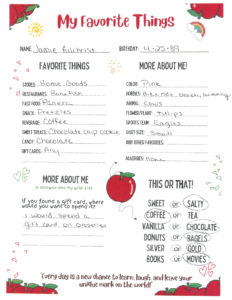 My Favorite Things
NAME: Jamie Gilchrist BIRTHDAY: 4-25-89
FAVORITE THINGS
STORES: Home Goods
RESTAURANTS: Bonefish
FAST FOOD: Panera
SNACK: Pretzels
BEVERAGE: Coffee
SWEET TREATS: Chocolate Chip Cookie
CANDY: Chocolate
GIFT CARDS: Any
MORE ABOUT ME!
COLOR: Pink
HOBBIES: beach, running
ANIMAL: Cows
FLOWER/PLANT: tulips
SPORTS TEAM: Eagles
SHIRT SIZE: Small
ANY OTHER FAVORITES:
ALLERGIES: None
MORE ABOUT ME
If you found a gift card, where
would you want to spend it?
I would spend a
gift card on groceries
THIS OR THAT!
SWEET or SALTY
COFFEE or TEA
VANILLA or CHOCOLATE
DONUTS or BAGELS
SILVER or GOLD
BOOKS or MOVIES
"Every day is a new chance to learn, laugh, and leave your
unique mark on the world!"